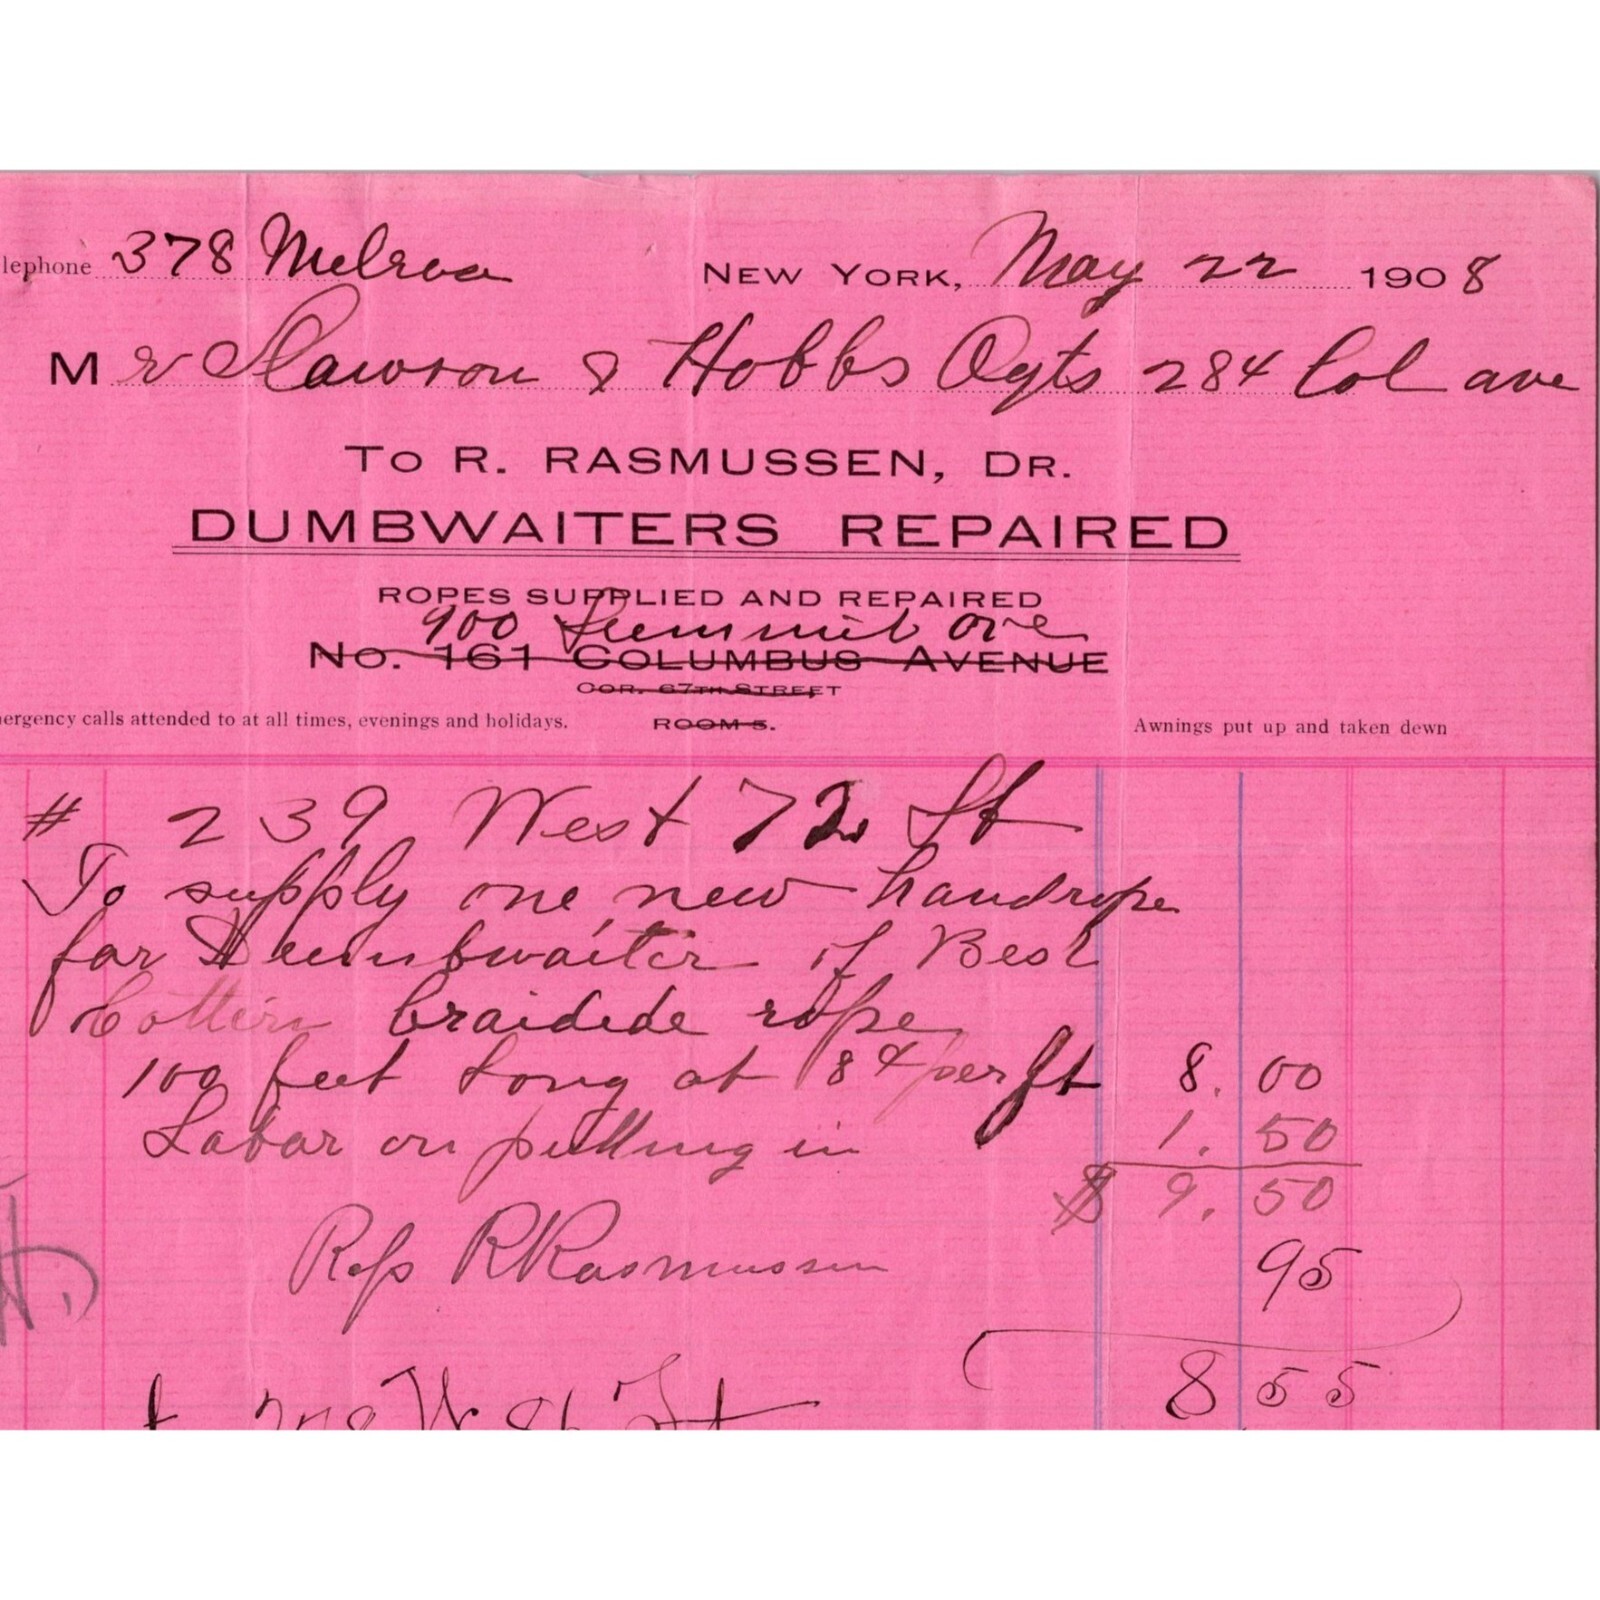 lephone 378 Melrose
NEW YORK, May 22 1908
Mr Slawson & Hobbs Agts 284 Col ave
TO R. RASMUSSEN, DR.
DUMBWAITERS REPAIRED
ROPES SUPPLIED AND REPAIRED
900 Summit ave
NO. 161 COLUMBUS AVENUE
COR. 67TH STREET
ergency calls attended to at all times, evenings and holidays.
ROOM 5.
Awnings put up and taken down
# 239 West 72 St
To supply one new handrope
for Dumbwaiter of Best
Cotten braidede rope
100 feet long at 8¢ per ft 8.00
Labor on putting in 1.50
$ 9.50
R Rasmussen
95
8 55